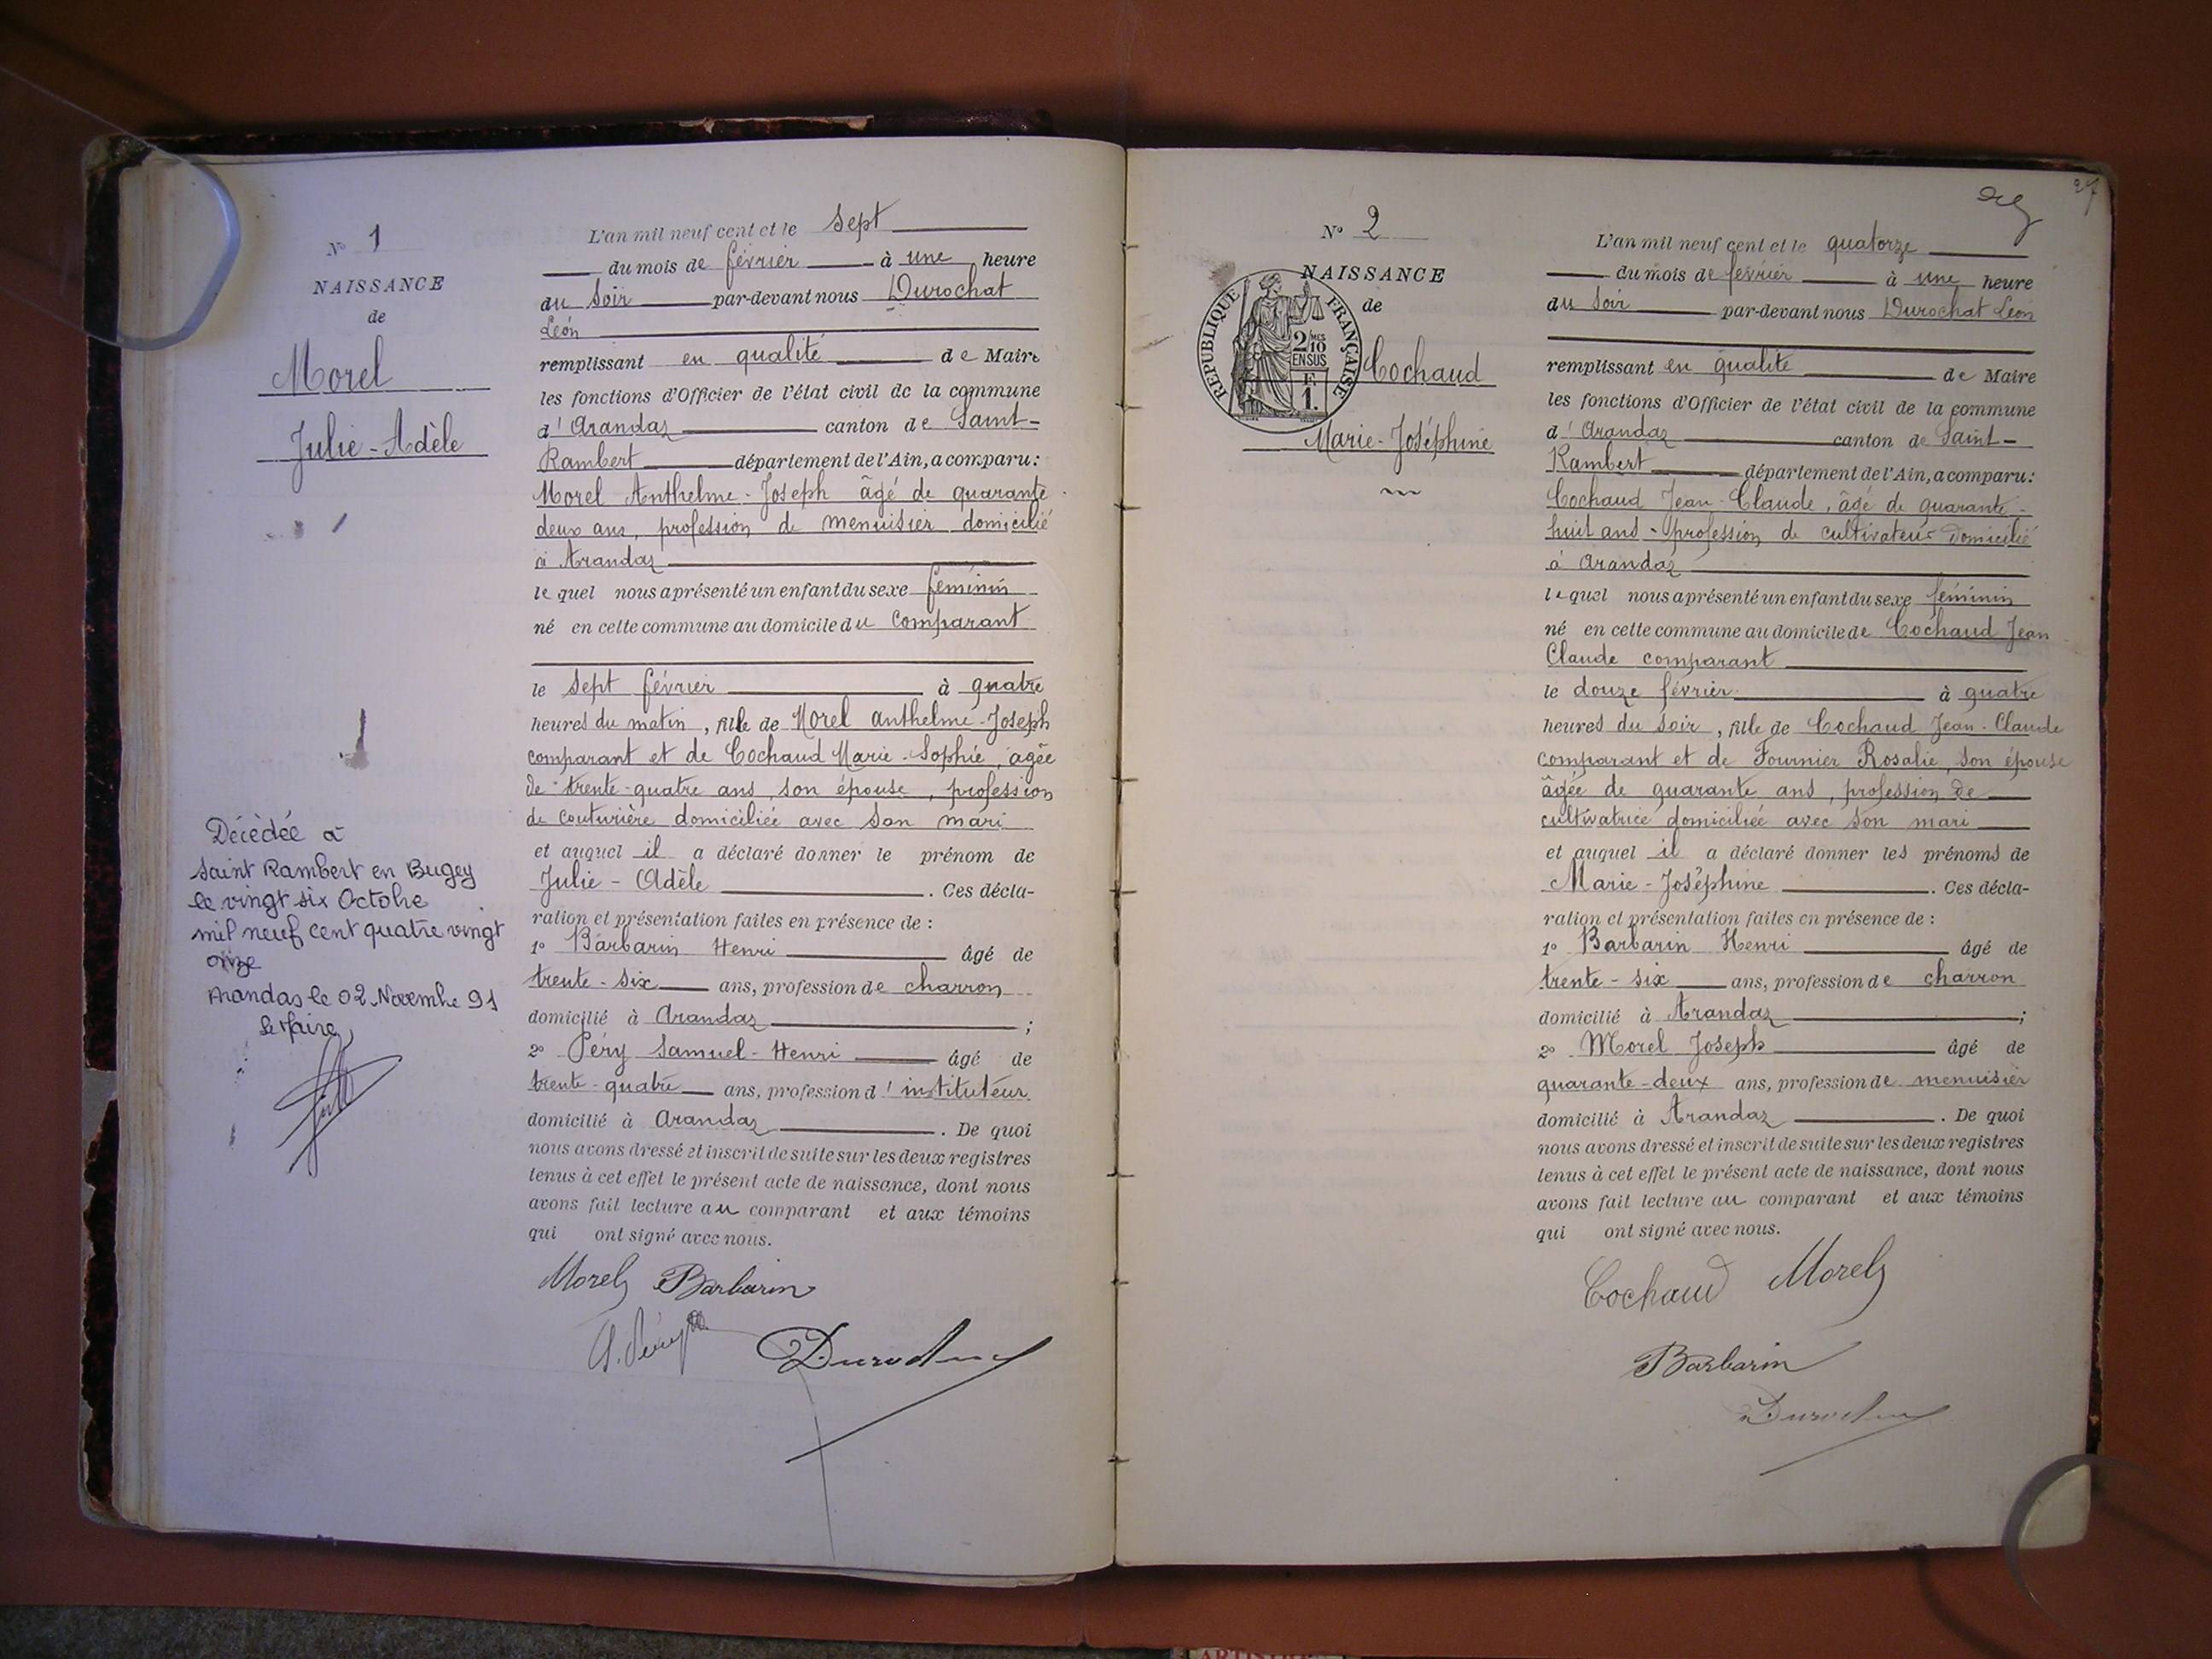 N° 1
NAISSANCE
de
Morel
Julie-Adèle
Décèdée a
Saint Rambert en Bugey
le vingt six Octobre
mil neuf cent quatre vingt
onze
Arandas le 02 Novembre 91
le Maire
L'an mil neuf cent et le sept
du mois de février à une heure
du soir par-devant nous Durochat
Léon
remplissant en qualité de Maire
les fonctions d'Officier de l'état civil de la commune
d'Arandaz canton de Saint-
Rambert département de l'Ain, a comparu:
Morel Anthelme-Joseph âgé de quarante
deux ans, profession de menuisier domicilié
à Arandaz
lequel nous a présenté un enfant du sexe féminin
né en cette commune au domicile du comparant
le sept février à quatre
heures du matin, fille de Morel Anthelme-Joseph
comparant et de Cochaud Marie-Sophie, âgée
de trente-quatre ans, son épouse, profession
de couturière domiciliée avec son mari
et auquel il a déclaré donner le prénom de
Julie-Adèle. Ces décla-
ration et présentation faites en présence de:
1° Barbarin Henri âgé de
trente-six ans, profession de charron
domicilié à Arandaz;
2° Péry Samuel-Henri âgé de
trente-quatre ans, profession d'instituteur
domicilié à Arandaz. De quoi
nous avons dressé et inscrit de suite sur les deux registres
tenus à cet effet le présent acte de naissance, dont nous
avons fait lecture au comparant et aux témoins
qui ont signé avec nous.
Morel Barbarin
S. Péry Durochat
27
N° 2
NAISSANCE
de
REPUBLIQUE FRANÇAISE
2/10 MES
EN SUS
F.
1.
Cochaud
Marie-Joséphine
L'an mil neuf cent et le quatorze
du mois de février à une heure
du soir par-devant nous Durochat Léon
remplissant en qualité de Maire
les fonctions d'Officier de l'état civil de la commune
d'Arandaz canton de Saint-
Rambert département de l'Ain, a comparu:
Cochaud Jean-Claude, âgé de quarante-
huit ans - profession de cultivateur domicilié
à Arandaz
lequel nous a présenté un enfant du sexe féminin
né en cette commune au domicile de Cochaud Jean
Claude comparant
le douze février à quatre
heures du soir, fille de Cochaud Jean-Claude
comparant et de Fournier Rosalie, son épouse
âgée de quarante ans, profession de
cultivatrice domiciliée avec son mari
et auquel il a déclaré donner les prénoms de
Marie-Joséphine. Ces décla-
ration et présentation faites en présence de:
1° Barbarin Henri âgé de
trente-six ans, profession de charron
domicilié à Arandaz;
2° Morel Joseph âgé de
quarante-deux ans, profession de menuisier
domicilié à Arandaz. De quoi
nous avons dressé et inscrit de suite sur les deux registres
tenus à cet effet le présent acte de naissance, dont nous
avons fait lecture au comparant et aux témoins
qui ont signé avec nous.
Cochaud Morel
Barbarin
Durochat